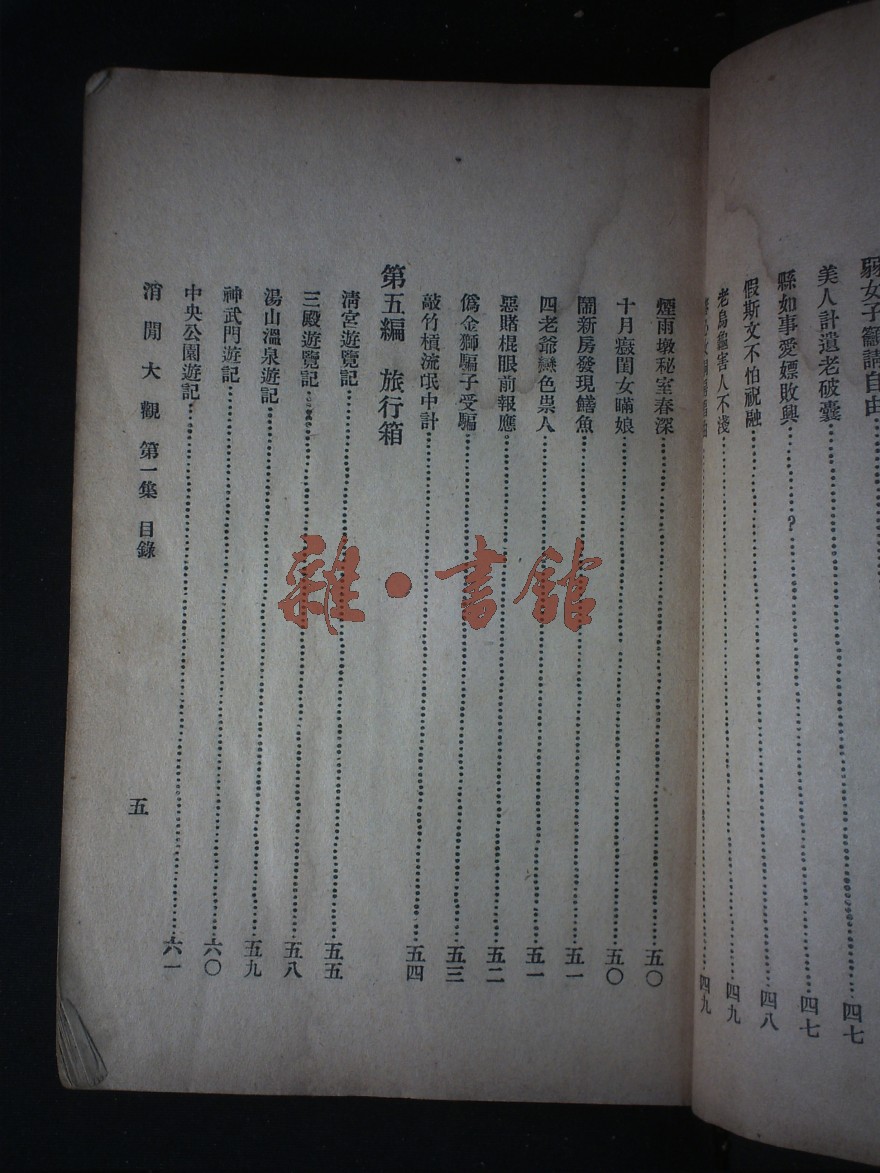 弱女子籲請自由……四七
美人計遣老破囊……四七
縣如事愛嫖敗興……?……四八
假斯文不怕祝融……四九
老烏龜害人不淺……四九
煙雨墩秘室春深……五〇
十月癡閨女瞞娘……五〇
鬧新房發現鱔魚……五一
四老爺戀色祟人……五一
惡賭棍眼前報應……五二
僞金獅騙子受騙……五三
敲竹槓流氓中計……五四
第五編 旅行箱
淸宮遊覽記……五五
三殿遊覽記……五八
湯山溫泉遊記……五九
神武門遊記……六〇
中央公園遊記……六一
消閒大觀 第一集 目錄
五
雜·書館